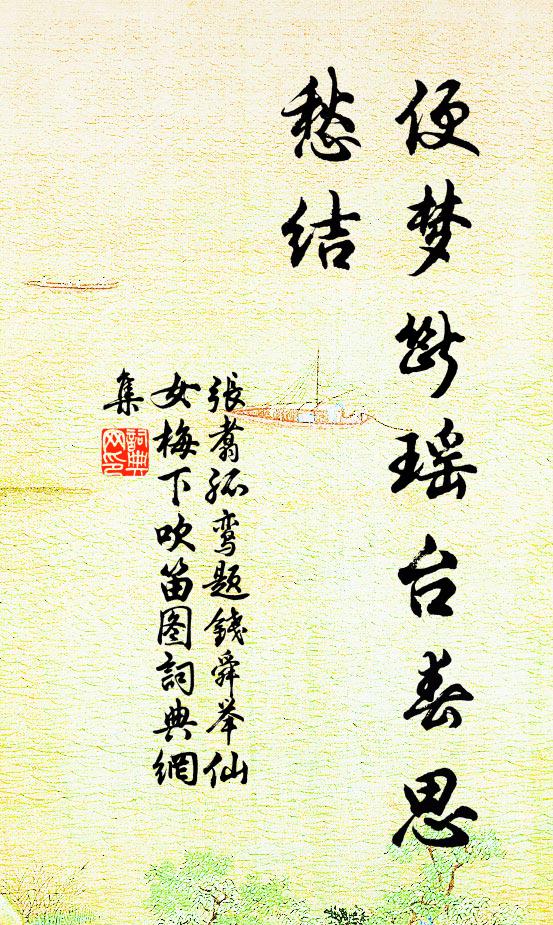 便梦断瑶台春思
愁结
張翥孤鸾題錢舜举仙
女梅下吹笛图詞典網
集
詞典
网印